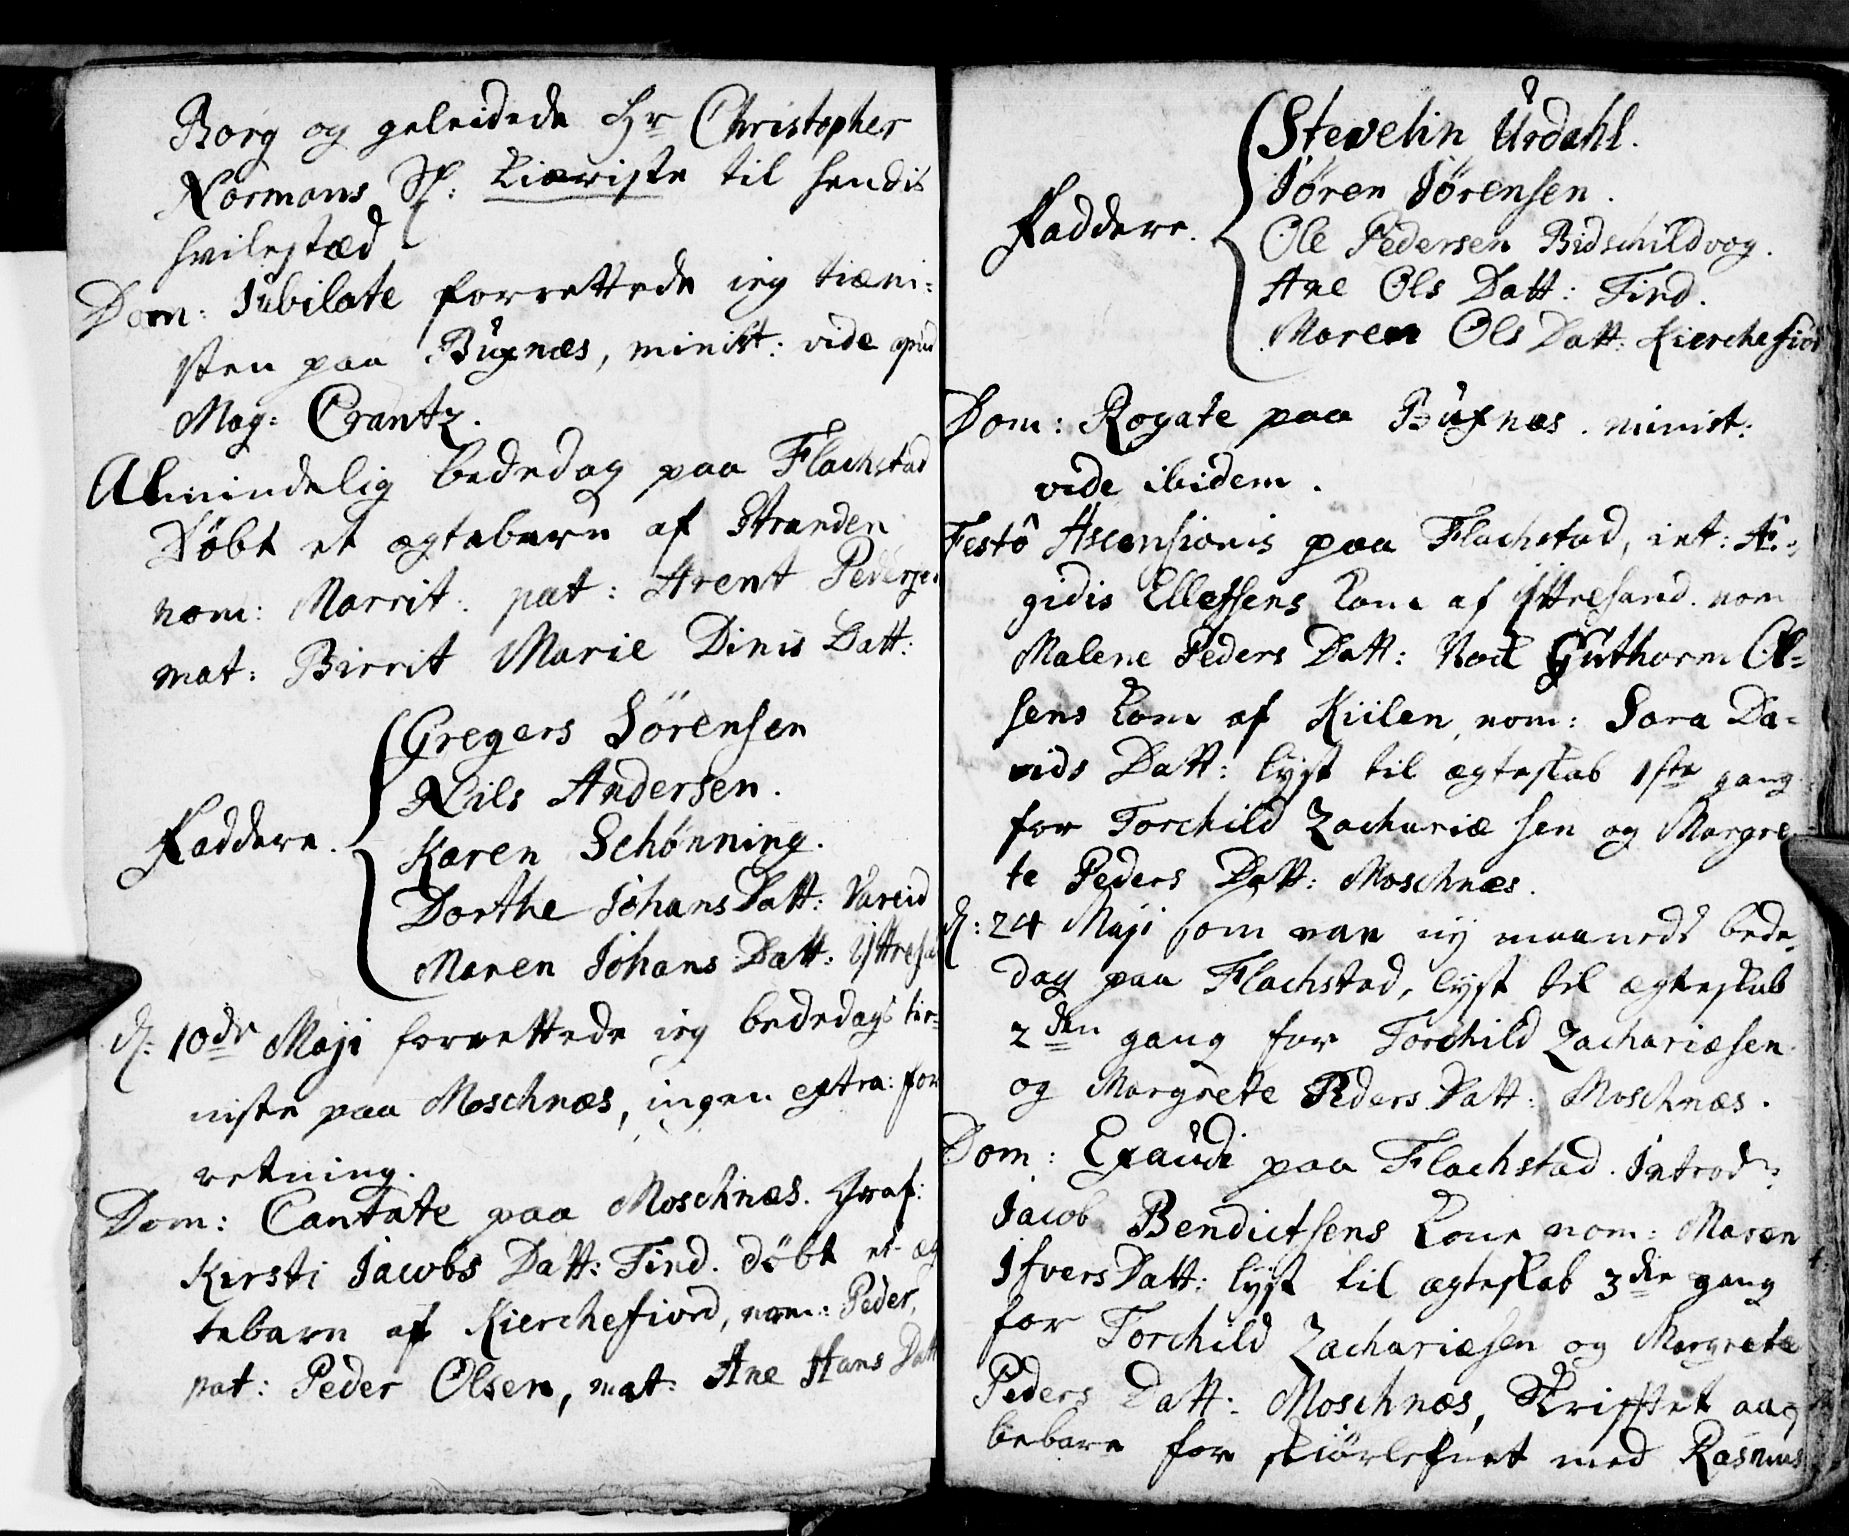 Borg og geleidede Hr Christopher
Normans S: Kiæriste til hendis
hvilestæd
Dom: Jubilate forrettede ieg tieni:
sten paa Buxnæs, minist: vide apud
Mag: Crantz.
Almindelig bededag paa Flachstad
Döbt et ægtebarn af Stranden
nom: Marrit. pat: Arent Pedersen
mat: Birrit Marie Dinis Datt:
Gregers Sörensen
Nils Andersen.
Karen Schønning.
Faddere.
Dorthe Johans Datt: Vareid
Maren Johans Datt: Yttresa
d: 10de Maji forrettede ieg bededags tie-
niste paa Moschnæs, ingen extra: for
retning.
Dom: Cantate paa Moschnæs. Graf:
Kirsti Jacobs Datt: Find. döbt et æg
tebarn af Kierchefiord, nom: Peder,
pat: Peder Olsen, mat: Ane Hans Datt
Stevelin Urdahl.
Jören Jörensen.
Faddere.
Ole Pedersen Bidschildvog.
Ane Ols Datt: Find.
Maren Ols Datt: Kierchefiord
Dom: Rogate paa Buxnæs. minist:
vide ibidem.
Festô Ascensionis paa Flachstad, int: Æ-
gidis Ellefsens Kone af Yttresand. nom
Malene Peders Datt: Nod Guthorm Ol-
sens Kone af Kiilen, nom: Sara Da-
vids Datt: lyst til ægteskab 1ste gang
for Torchild Zachariæ sen og Margre-
te Peders Datt: Moschnæs.
d: 24 Maji som var ny maaneds bede-
dag paa Flachstad, lyst til ægteskab
2den gang for Torchild Zachariæsen
og Margrete Peders Datt: Moschnæs.
Dom: Exaudi paa Flachstad. Introd:
Jacob Bendictsens Kone nom: Maren
Ifvers Datt: lyst til ægteskab 3die gang
for Torchild Zachariæsen og Margrete
Peders Datt: Moschnæs, Skrifftet aag
bebare for skiörlefnet med Rasmus